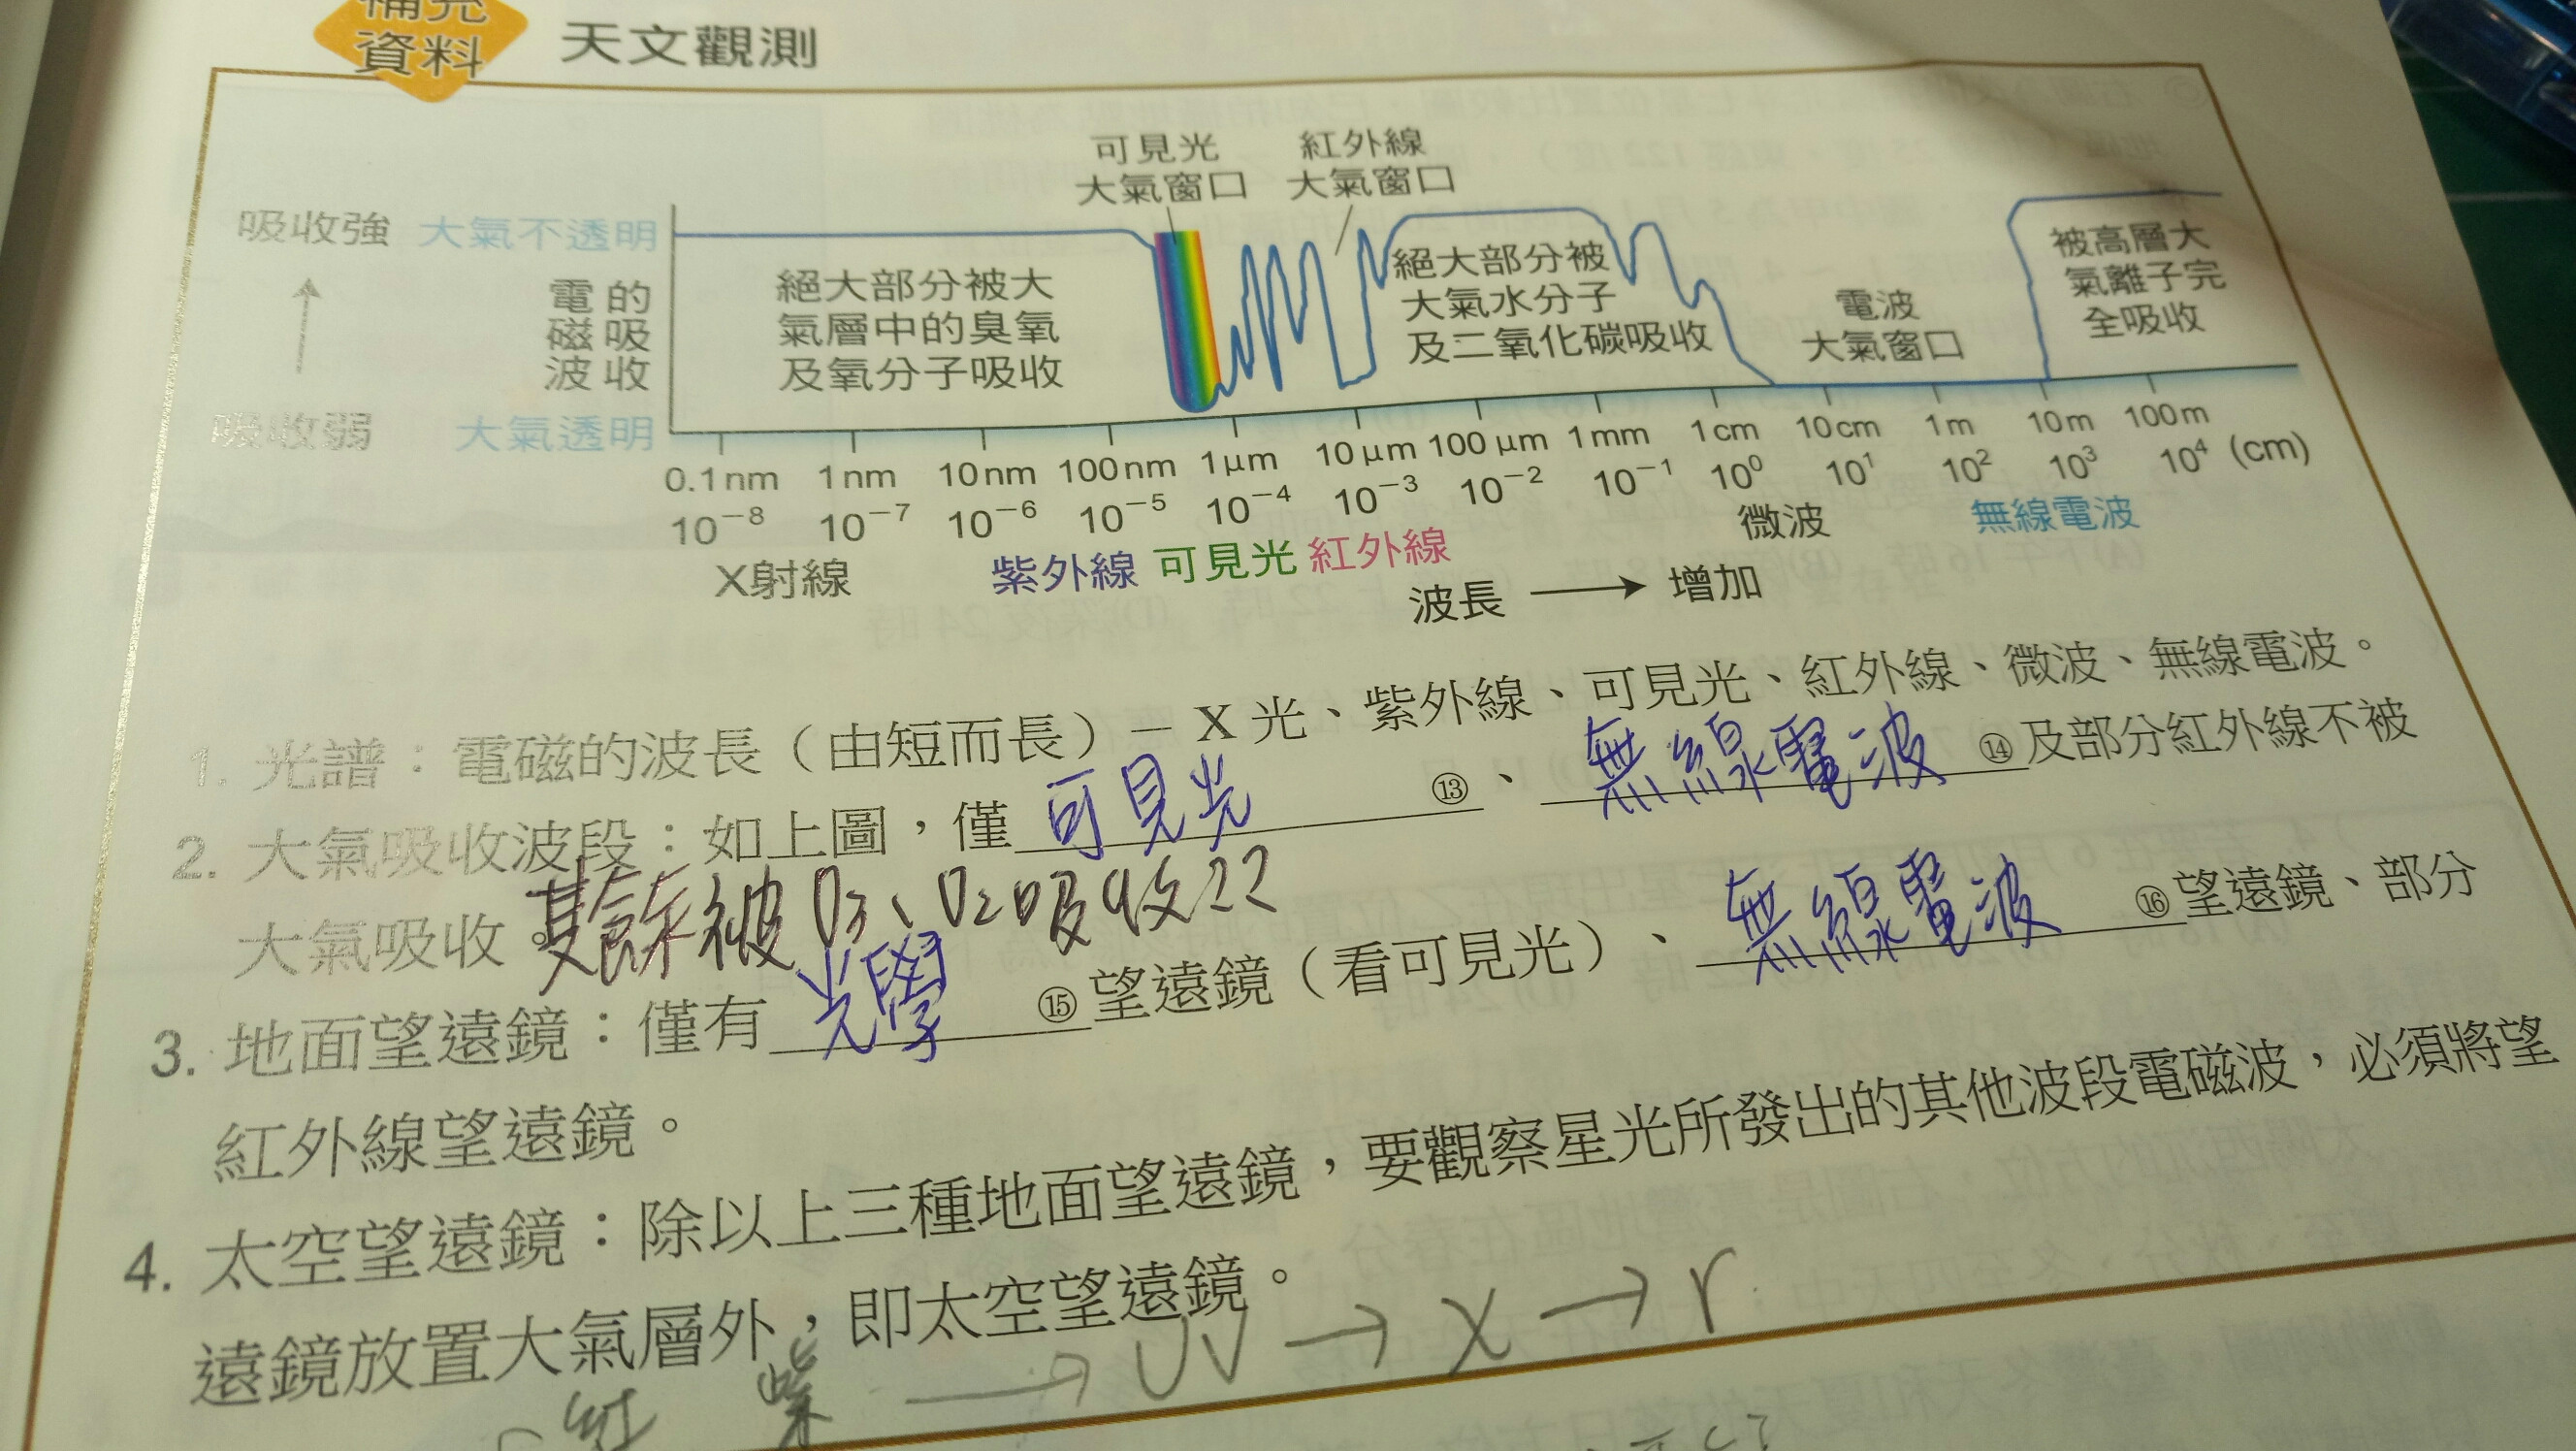 補充
資料
天文觀測
可見光
大氣窗口
紅外線
大氣窗口
吸收強
大氣不透明
電磁波
的吸收
吸收弱
大氣透明
絕大部分被大
氣層中的臭氧
及氧分子吸收
絕大部分被
大氣水分子
及二氧化碳吸收
電波
大氣窗口
被高層大
氣離子完
全吸收
0.1nm 1nm 10nm 100nm 1μm 10μm 100μm 1mm 1cm 10cm 1m 10m 100m
10⁻⁸ 10⁻⁷ 10⁻⁶ 10⁻⁵ 10⁻⁴ 10⁻³ 10⁻² 10⁻¹ 10⁰ 10¹ 10² 10³ 10⁴ (cm)
X射線 紫外線 可見光 紅外線 微波 無線電波
波長 → 增加
1. 光譜：電磁的波長（由短而長）－X光、紫外線、可見光、紅外線、微波、無線電波。
2. 大氣吸收波段：如上圖，僅可見光⑬、無線電波⑭及部分紅外線不被
大氣吸收。其餘被O3、O2吸收??
3. 地面望遠鏡：僅有光學⑮望遠鏡（看可見光）、無線電波⑯望遠鏡、部分
紅外線望遠鏡。
4. 太空望遠鏡：除以上三種地面望遠鏡，要觀察星光所發出的其他波段電磁波，必須將望
遠鏡放置大氣層外，即太空望遠鏡。
紅 紫 → UV → X → r